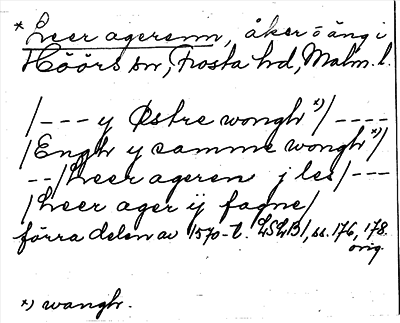 * Leer ageren, åker o äng i
Höörs sn, Frosta hd, Malm. l.
/--- y Østre wongh *)/ ----
/Engh y samme wongh *)/
--/Leer ageren j les/---
/Leer ager ij fagne/
förra delen av 1570-t. LSLB1, ss. 176, 178.
orig.
*) wangh.